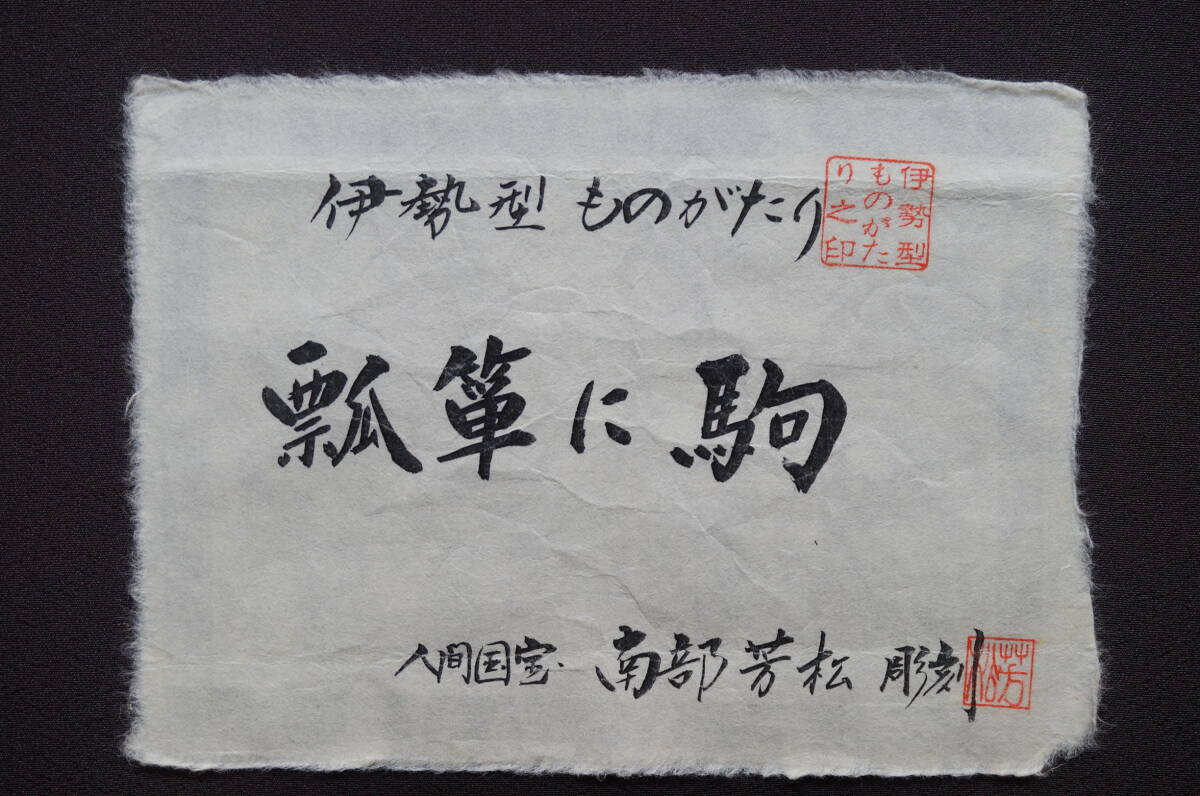 伊勢型ものがたり
伊勢型
ものがた
り之印
瓢箪に駒
人間国宝 南部芳松 彫刻
芳松